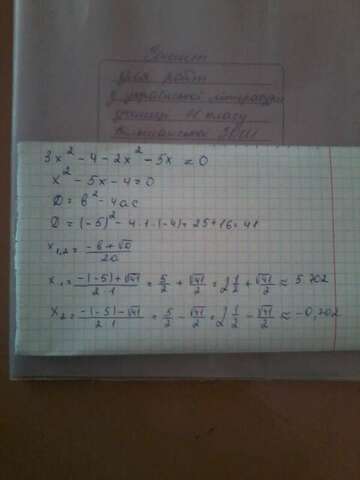 Зошит
для робіт
з української літератури
учениці 11 класу
3x² - 4 - 2x² - 5x = 0
x² - 5x - 4 = 0
D = b² - 4ac
D = (-5)² - 4·1·(-4) = 25 + 16 = 41
x₁,₂ = (-b ± √D)/2a
x₁ = (-(-5) + √41)/(2·1) = 5/2 + √41/2 = 2 1/2 + √41/2 ≈ 5.702
x₂ = (-(-5) - √41)/(2·1) = 5/2 - √41/2 = 2 1/2 - √41/2 ≈ -0,702